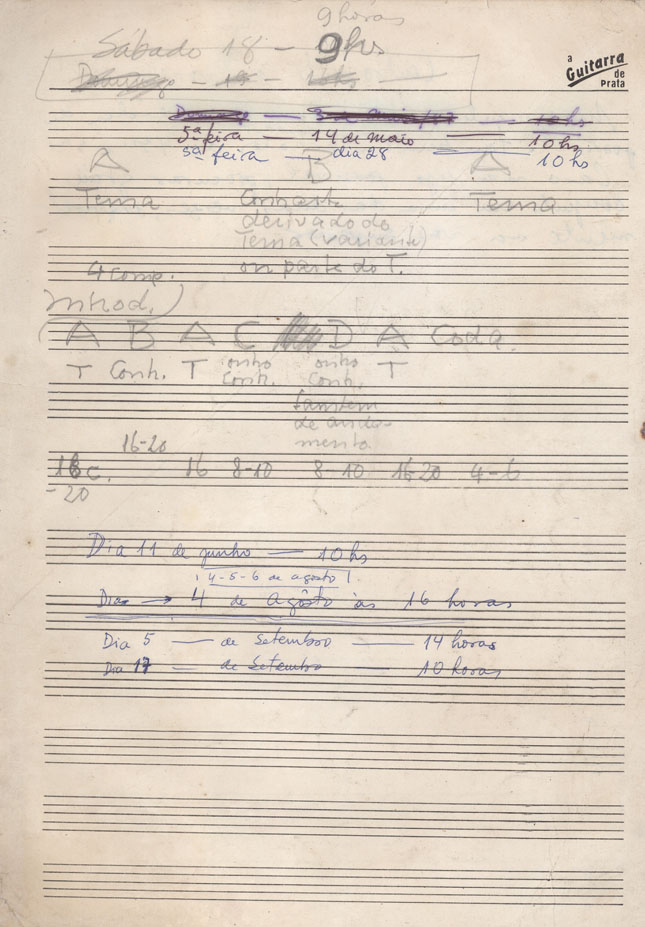 9 horas
Sábado 18 - 9 hs
a
Guitarra
de
Prata
Domingo -
Domingo — — 10 hs
5ª feira — 14 de maio — 10 hs
5ª feira — dia 28 — 10 hs
A B A
Tema Contraste Tema
derivado do
Tema (variante)
4 comp. ou parte do T.
Introd.)
A B A C D A Coda.
T Contr. T outro outro T
Contr. Contr.
também
de anda-
mento
16-20
16 c. 16 8-10 8-10 16-20 4-6
-20
Dia 11 de junho — 10 hs
4-5-6 de agôsto
Dia → 4 de agôsto às 16 horas
Dia 5 — de Setembro — 14 horas
Dia 17 — de Setembro — 10 horas